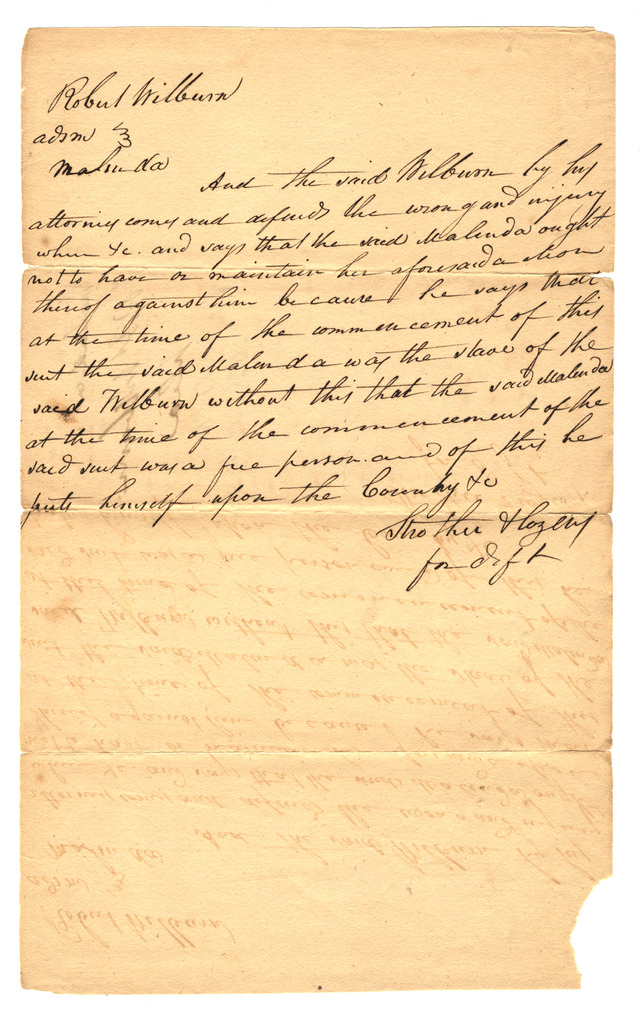 Robert Wilburn
adsm
Malinda
And the said Wilburn by his
attorney comes and defends the wrong and injury
when &c. and says that the said Malinda ought
not to have or maintain her aforesaid action
thereof against him because he says that
at the time of the commencement of this
suit the said Malinda was the slave of the
said Wilburn without this that the said Malinda
at the time of the commencement of the
said suit was a free person and of this he
puts himself upon the Country &c
Strother & Cozens
for deft